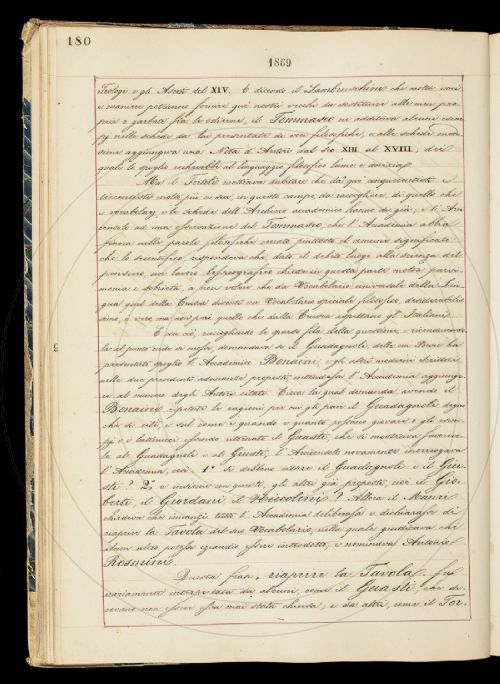 180
1869
Teologi e gli Asceti del XIV. E dicendo il Lambruschini che molte voci
e maniere potranno fornire que' nostri vecchi da sostituire alle men pro-
prie o garbate fra le odierne, il Tommaseo ne additava alcuni esem-
pj nelle schede da lui presentate di voci filosofiche, e alle schede mede-
sime aggiungeva una Nota d'Autori dal Sec. XIII al XVIII, dei
quali lo spoglio recherebbe al linguaggio filosofico lume e dovizia.
Ma il Tortoli mostrava dubitare che da' più
resti molto più a fare, in questo campo, da raccogliere, di quello che
i vocabolarj e le schede dell'Archivio accademico hanno di già; e l'Arci-
consolo ad una osservazione del Tommaseo, che l'Accademia abbia
finora nelle parole filosofiche cercato piuttosto il comune significato
che lo scientifico, rispondeva che dato il debito luogo alla scienza del
pensiero, un lavoro lessicografico chiede in questa parte molta parsi-
monia e sobrietà, a non volere che da Vocabolario universale della Lin-
gua qual della Crusca diventi un Vocabolario speciale filosofico, desiderabilis-
simo, è vero, ma non però quello che dalla Crusca aspettano gl'Italiani.
E dopo ciò, raccogliendo le sparse fila della questione, e riconducendo-
la al punto onde si mosse, domandava se il Guadagnoli, della cui Poesie ha
presentato spoglio l'Accademico Bonaini, e gli altri moderni Scrittori
nelle due precedenti adunanze proposti, intendesse l'Accademia aggiunge-
re al numero degli Autori citati. Circa la qual domanda, avendo il
Bonaini ripetute le ragioni per cui gli pare il Guadagnoli degno
che si citi, e sul come e quando e quanto possano giovare e gli esem-
pj e i latinucci essendo interrotto il Guasti, che si mostrava favorevo-
le al Guadagnoli e al Giusti; l'Arciconsolo novamente interrogava
l'Accademia, ora 1.º Si debbano citare il Guadagnoli e il Giu-
sti? 2.º e insieme con questi, gli altri già proposti, cioè il Gio-
berti, il Giordani, il Niccolini? Allora il Mauri
chiedeva che innanzi tutto l'Accademia deliberasse e dichiarasse di
riaprire la Tavola del suo Vocabolario, nella quale giudicava che
alcun altro potesse eziandio essere introdotto, e nominava Antonio
Rosmini.
Questa frase, riaprire la Tavola, fu
variamente interpretata da alcuni, come il Guasti, che di-
cevano non essere essa mai stata chiusa; e da altri, come il Tor-